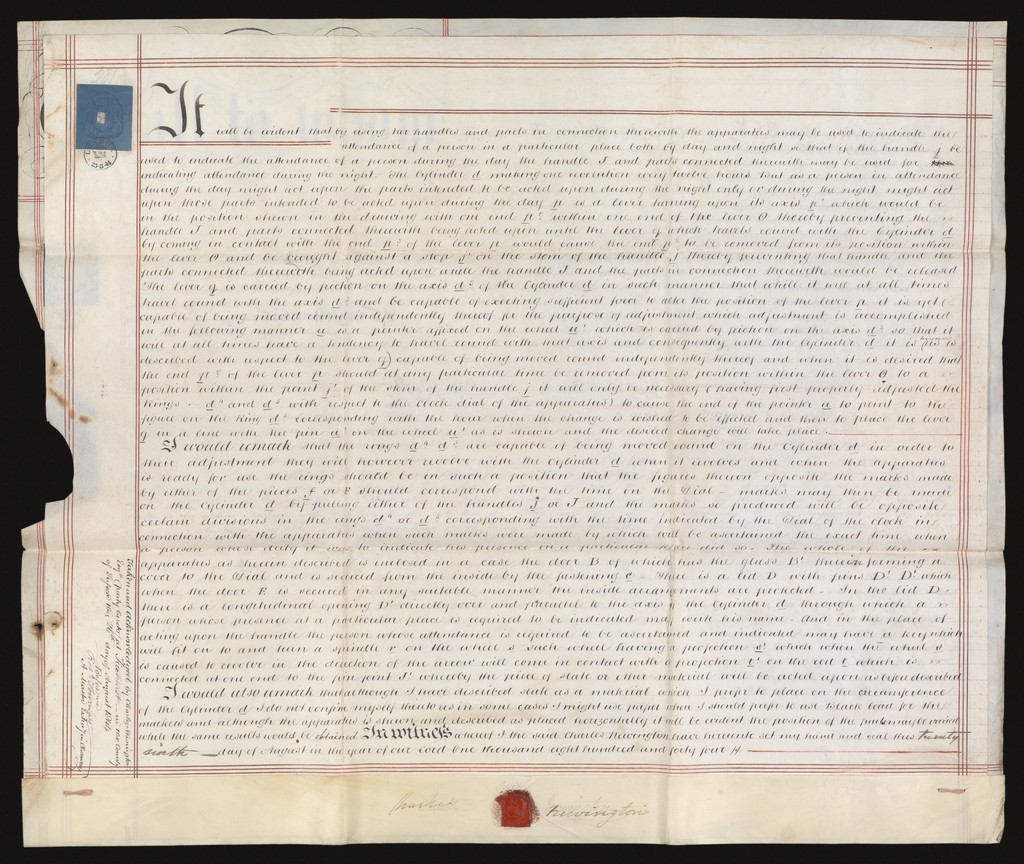 It will be evident that by using two handles and parts in connection therewith the apparatus may be used to indicate the
attendance of a person in a particular place both by day and night so that if the handle j be
used to indicate the attendance of a person during the day the handle J and parts connected therewith may be used for
indicating attendance during the night. The Cylinder d making one revolution every twelve hours but as a person in attendance
during the day might act upon the parts intended to be acted upon during the night only or during the night might act
upon those parts intended to be acted upon during the day p is a lever turning upon its axis p' which would be
in the position shewn in the drawing with one end p² within one end of the lever O thereby preventing the
handle J and parts connected therewith being acted upon until the lever q which travels round with the Cylinder d
by coming in contact with the end p³ of the lever p would cause the end p² to be removed from its position within
the lever O and be brought against a stop j' on the stem of the handle j thereby preventing that handle and the
parts connected therewith being acted upon while the handle J and the parts in connection therewith would be released
The lever q is carried by friction on the axis d² of the Cylinder d in such manner that while it will at all times
travel round with the axis d² and be capable of exerting sufficient force to alter the position of the lever p it is yet
capable of being moved round independently thereof for the purpose of adjustment which adjustment is accomplished
in the following manner u is a pointer affixed on the wheel u' which is carried by friction on the axis d² so that it
will at all times have a tendency to travel round with that axis and consequently with the Cylinder d it is (as is
described with respect to the lever q) capable of being moved round independently thereof and when it is desired that
the end p² of the lever p should at any particular time be removed from its position within the lever O to a
position within the point j' of the stem of the handle j it will only be necessary (having first properly adjusted the
Rings d⁴ and d⁵ with respect to the clock dial of the apparatus) to cause the end of the pointer u to point to the
figure on the Ring d⁴ corresponding with the hour when the change is wished to be effected and then to place the lever
q in a line with the pin u² on the wheel u' as is shewn and the desired change will take place.
I would remark that the rings d⁴ d⁵ are capable of being moved round on the Cylinder d in order to
their adjustment they will however revolve with the Cylinder d when it revolves and when the apparatus
is ready for use the rings should be in such a position that the figures thereon opposite the marks made
by either of the pieces f or F should correspond with the time on the Dial – marks may then be made
on the Cylinder d by pulling either of the handles j or J and the marks so produced will be opposite
certain divisions in the rings d⁴ or d⁵ corresponding with the time indicated by the Dial of the clock in
connection with the apparatus when such marks were made by which will be ascertained the exact time when
a person whose duty it was to indicate his presence in a particular place did so. The whole of the
apparatus as herein described is inclosed in a case the door B of which has the glass B' therein forming a
cover to the Dial and is secured from the inside by the fastening C. There is a lid D with pins D' D' which
when the door E is secured in any suitable manner the inside arrangements are protected. In the lid D
there is a longitudinal opening D² directly over and parallel to the axis of the Cylinder d through which a
person whose presence at a particular place is required to be indicated may write his name. And in the place of
acting upon the handle the person whose attendance is required to be ascertained and indicated may have a key which
will fit on to and turn a spindle r on the wheel s such wheel having a projection s' which when the wheel s
is caused to revolve in the direction of the arrow will come in contact with a projection t' on the rod t which is
connected at one end to the pin joint J' whereby the piece of slate or other material will be acted upon as before described
I would also remark that although I have described slate as a material which I prefer to place on the circumference
of the Cylinder d I do not confine myself thereto as in some cases I might use paper then I should prefer to use Black Lead for the
markers and although the apparatus is shewn and described as placed horizontally it will be evident the position of the parts may be varied
while the same results would be obtained In witness whereof I the said Charles Newington have hereunto set my hand and seal this twenty
sixth day of August in the year of our Lord One thousand eight hundred and forty four
Charles Newington
Taken and acknowledged by Charles Newington